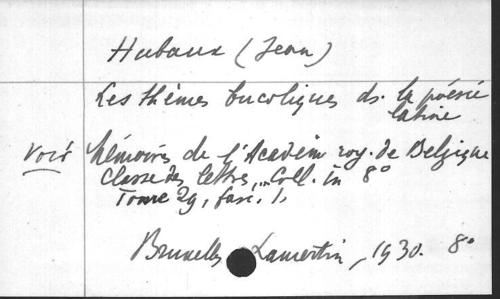 Hubaux (Jean)
Les thèmes bucoliques ds. la poésie
latine
Voir Mémoires de l'Académ roy. de Belgique
Classe des lettres, Coll. in 8°
Tome 29, fasc. 1,
Bruxelles Lamertin, 1930. 8°